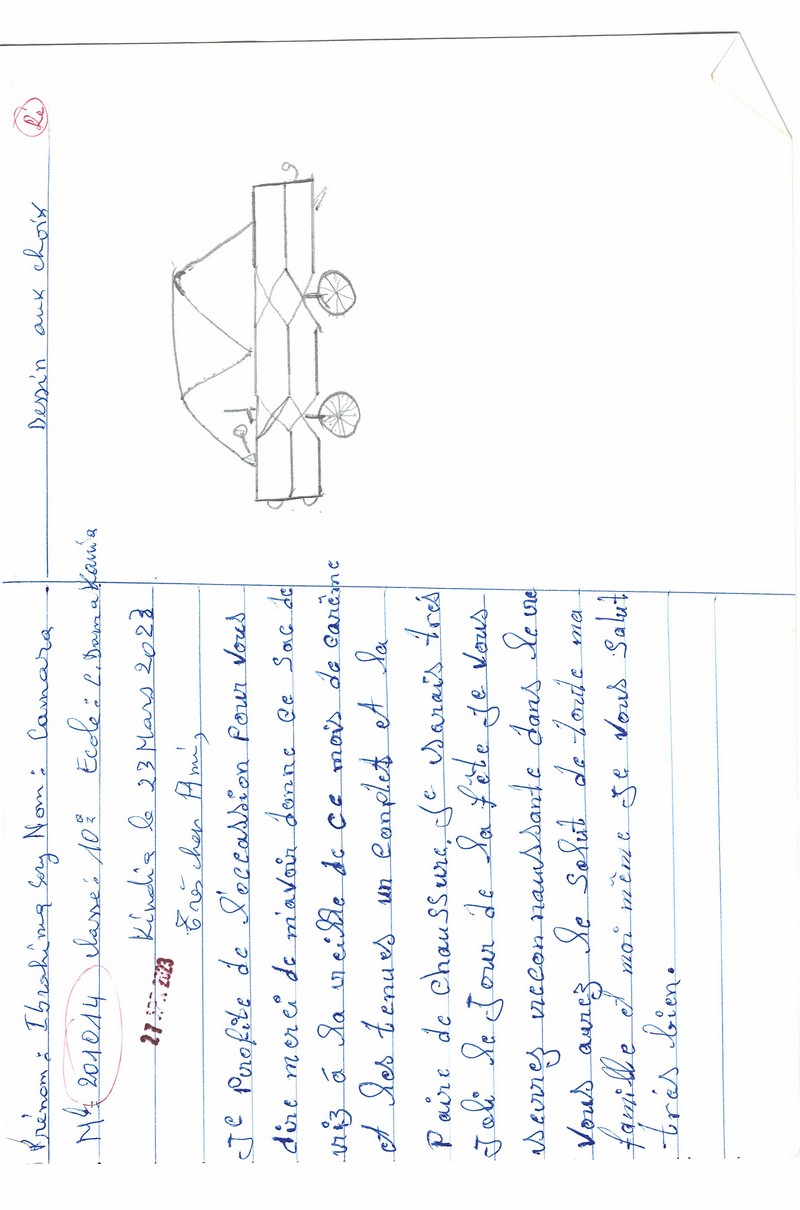 Prénom: Ibrahima Sory Nom: Camara
Mle 201014 classe: 10e Ecole: C. Damakania
Kindia le 23 Mars 2023
27 2023
Très cher Ami,
Je Profite de l'occassion Pour vous
dire merci de m'avoir donne ce Sac de
riz à la vieille de ce mois de carême
et les tenues un complet et la
Paire de chaussure. Je serais très
Joli le Jour de la fête Je vous
serrez reconnaussante dans le vie
Vous aurez le Salut de toute ma
famille et moi même Je vous Salut
très bien.
Dessin aux choix